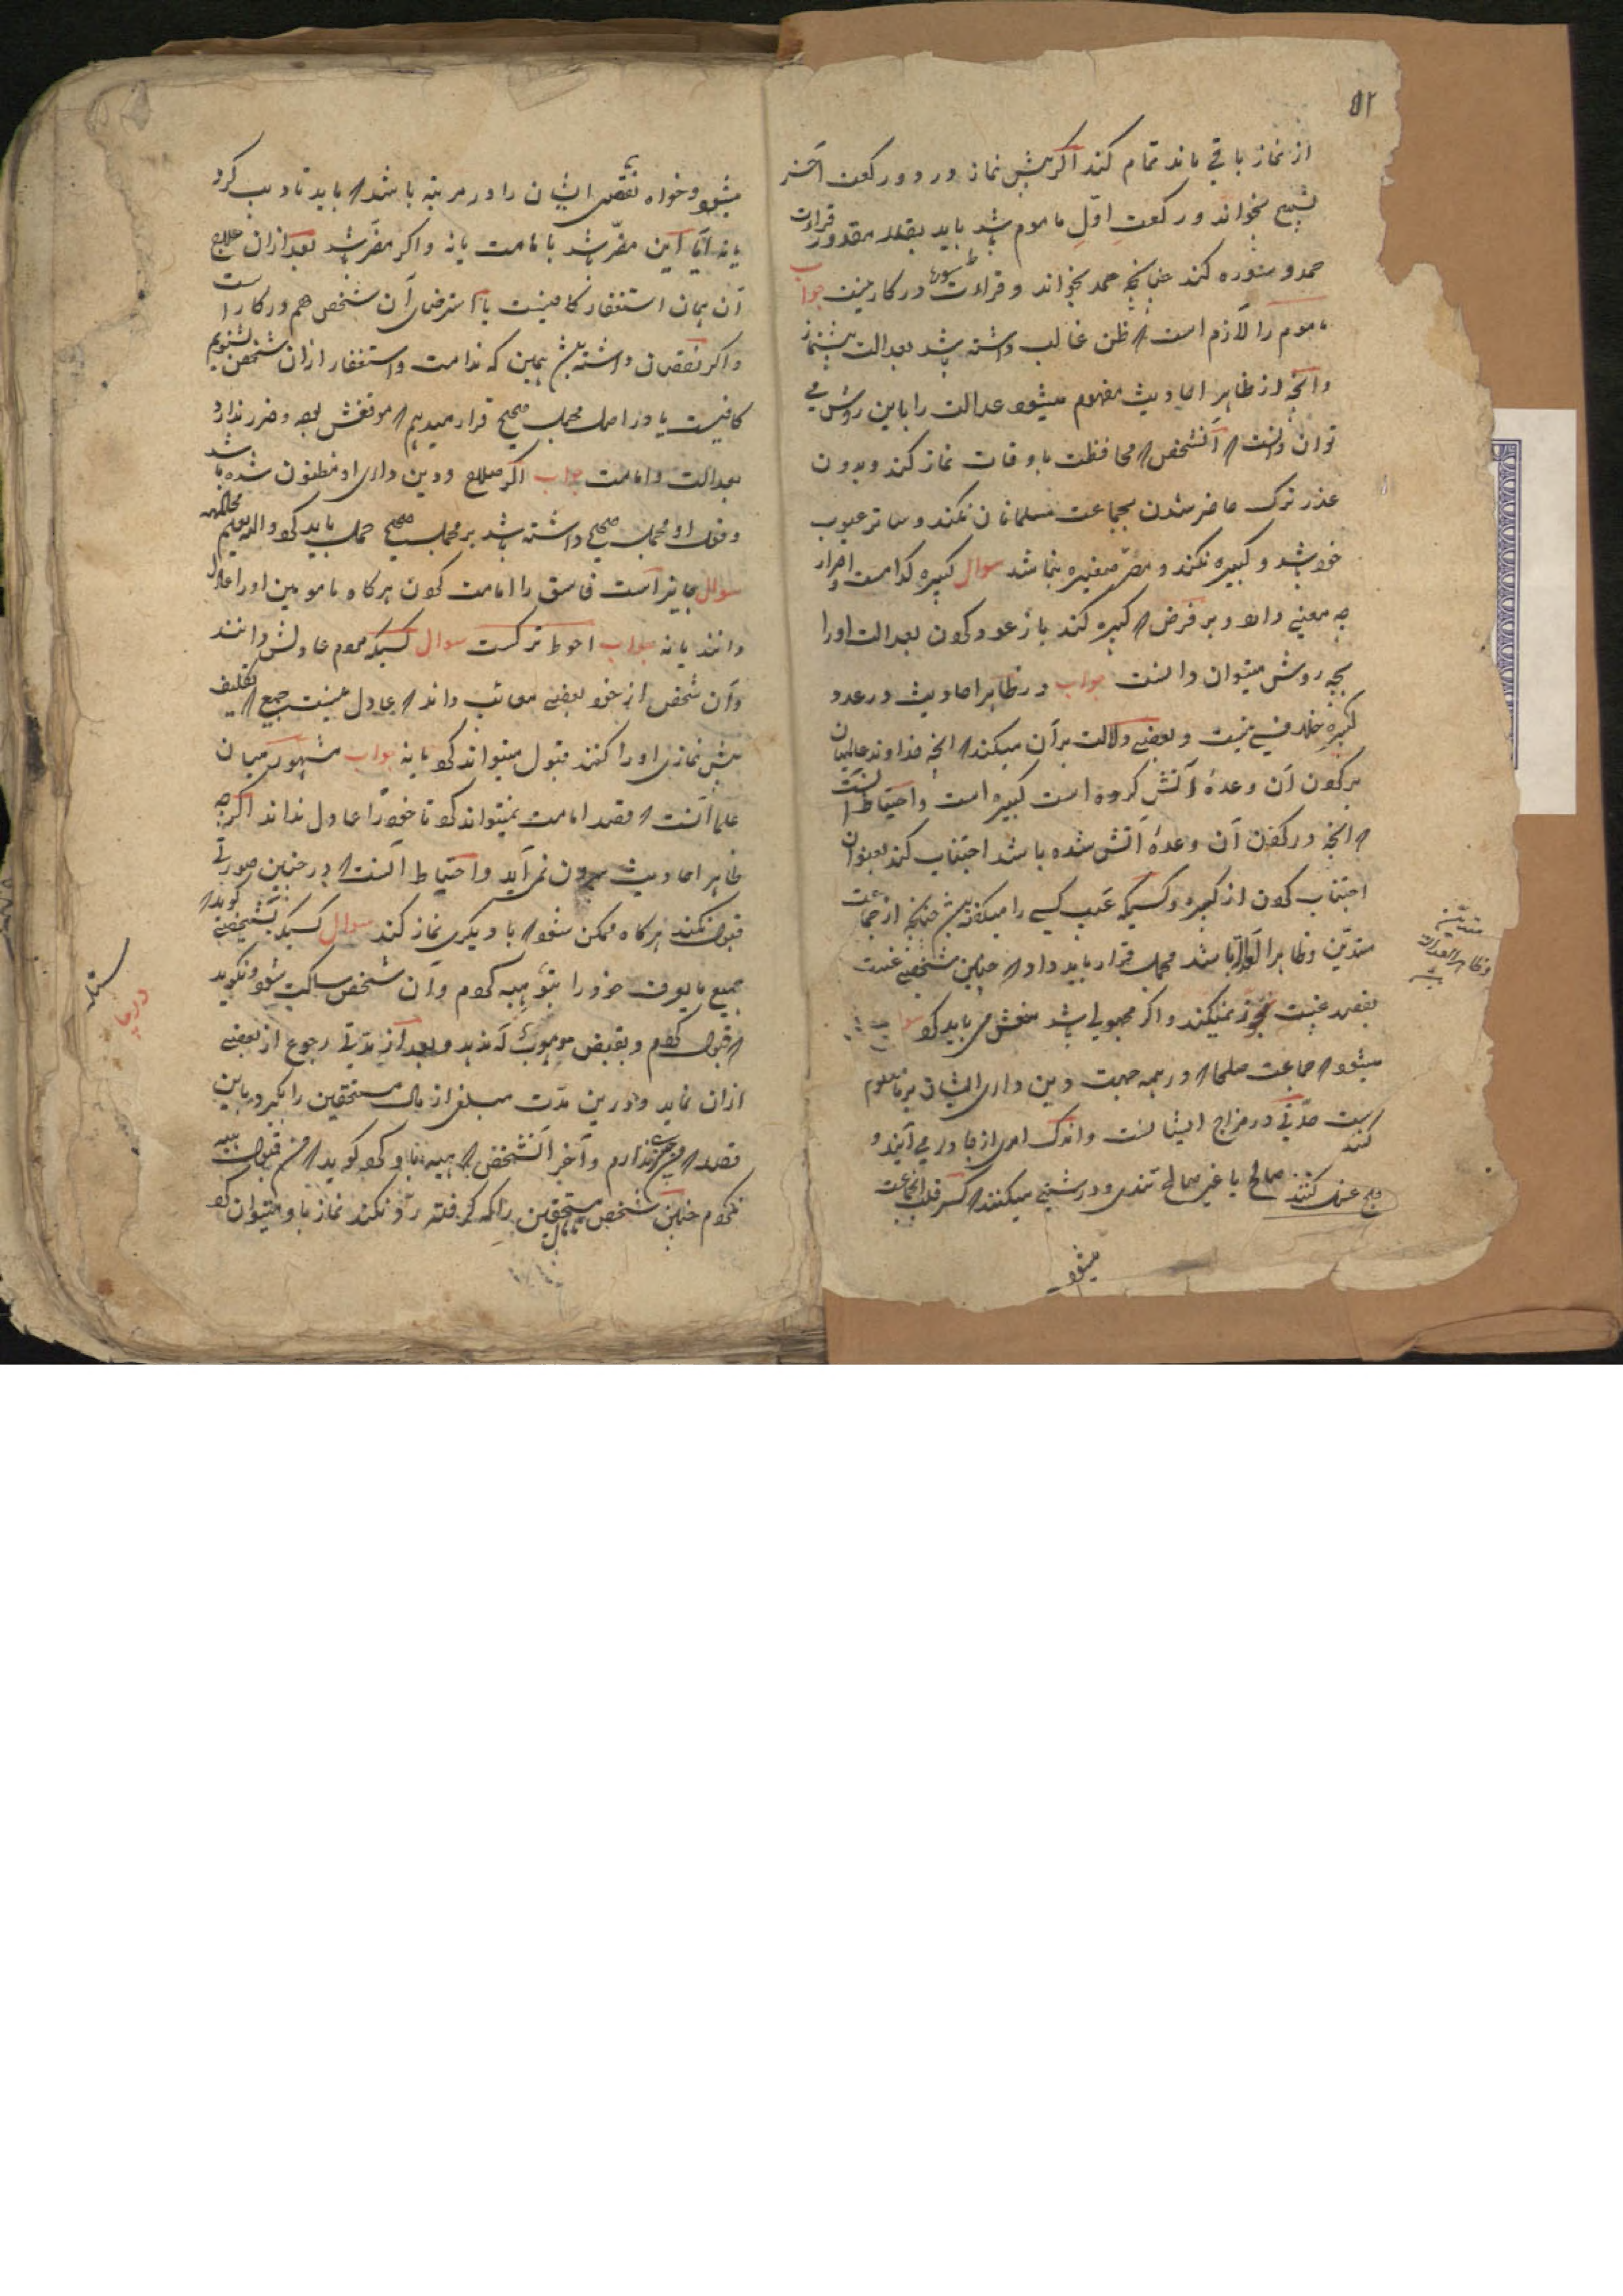 ۵۲
از نماز باقی ماند تمام کند اگر پیش نماز در دو رکعت آخر
تسبیح بخواند و رکعت اوّل ماموم باشد باید بقدر مقدور قراءت
حمد و سوره کند چنانچه حمد بخواند و قراءت سوره در کار نیست جواب
ماموم را لازم است که ظن غالب داشته باشد بعدالت پیشنماز
و آنچه از ظاهر احادیث مفهوم میشود عدالت را باین روش می
توان دانست که آنشخص که محافظت باوقات نماز کند و بدون
عذر ترک حاضر شدن بجماعت مسلمانان نکند و ساتر عیوب
خود باشد و کبیره نکند و مصرّ صغیره نباشد سوال کبیره کدامست و اصرار
چه معنی دارد و بر فرض که کبیره کند باز عود کردن بعدالت او را
بچه روش میتوان دانست جواب در ظاهر احادیث در عدد
کبیره خلافی نیست و بعضی دلالت بر آن میکند که آنچه خداوند عالمیان
بر کردن آن وعدهٔ آتش کرده است کبیره است و احتیاط آنست
که آنچه در کردن آن وعدهٔ آتش شده باشد اجتناب کند بعنوان
اجتناب کردن از کبیره و کسیکه عیب کسی را میگفته باشد چنانچه از جماعت
متدیّن و ظاهر العداله باشد محمل قرار باید داد که چنین شخصی غیبت
بقصد غیبت تجویز نمیکند و اگر مجهولی باشد منعش می باید کرد
میشود که جماعت صلحا که در همه جهت دین داری ایشان بر ما معلوم
است حدّتی در مزاج ایشانست و اندک امری از جا در می آیند و
صالح یا غیر صالح تندی و درشتی میکنند که کسر قلب آنجماعت
میشود
متدیّن
و ظاهر العداله
باشد
میشود و خواه نقص ایشان را در مرتبه باشد که باید تادیب کرد
یا نه آیا این مضرّ باشد با امامت یا نه و اگر مضرّ باشد بعد از آن علاج
آن همان استغفار کافیست یا استرضای آن شخص هم در کار است
و اگر نقصان داشته باشد همین که ندامت و استغفار از آن شخص بشنویم
کافیست یا در اصل محمل صحیح قرار میدهیم که موقعش بود و ضرر ندارد
بعدالت و امامت جواب اگر صلاح و دین داری او مظنون شده باشد
و قول او محمل صحیح داشته باشد بر محمل صحیح حمل باید کرد والله یعلم
سوال جایز است فاسق را امامت کردن هرگاه مامومین او را عادل
دانند یا نه جواب احوط ترکست سوال کسیکه مردم عادلش دانند
و آن شخص از خود بعضی معایب داند که عادل نیست جمع که تکلیف
پیش نمازی او را کنند قبول میتواند کرد یا نه جواب مشهور میان
علما آنست که قصد امامت نمیتواند کرد تا خود را عادل نداند اگرچه
ظاهر احادیث برون نمی آید و احتیاط آنست که در چنین صورتی
قبول نکند هرگاه ممکن شود که با دیگری نماز کند سوال کسیکه بشخصی گوید که
جمیع مایعرف خود را بتو هبه کردم و آن شخص ساکت شود و نگوید
که قبول کردم و بقبض موهوبٌ له ندهد و بعد از مدّتی رجوع از بعضی
از آن نماید و درین مدّت مبلغی از مال مستحقین را بگیرد باین
قصد که من چیزی ندارم و آخر آنشخص که هبه باو کرده گوید که من قبول هبه
نکردم چنین شخص مال مستحقین را که گرفته رد نکند نماز باو میتوان کرد